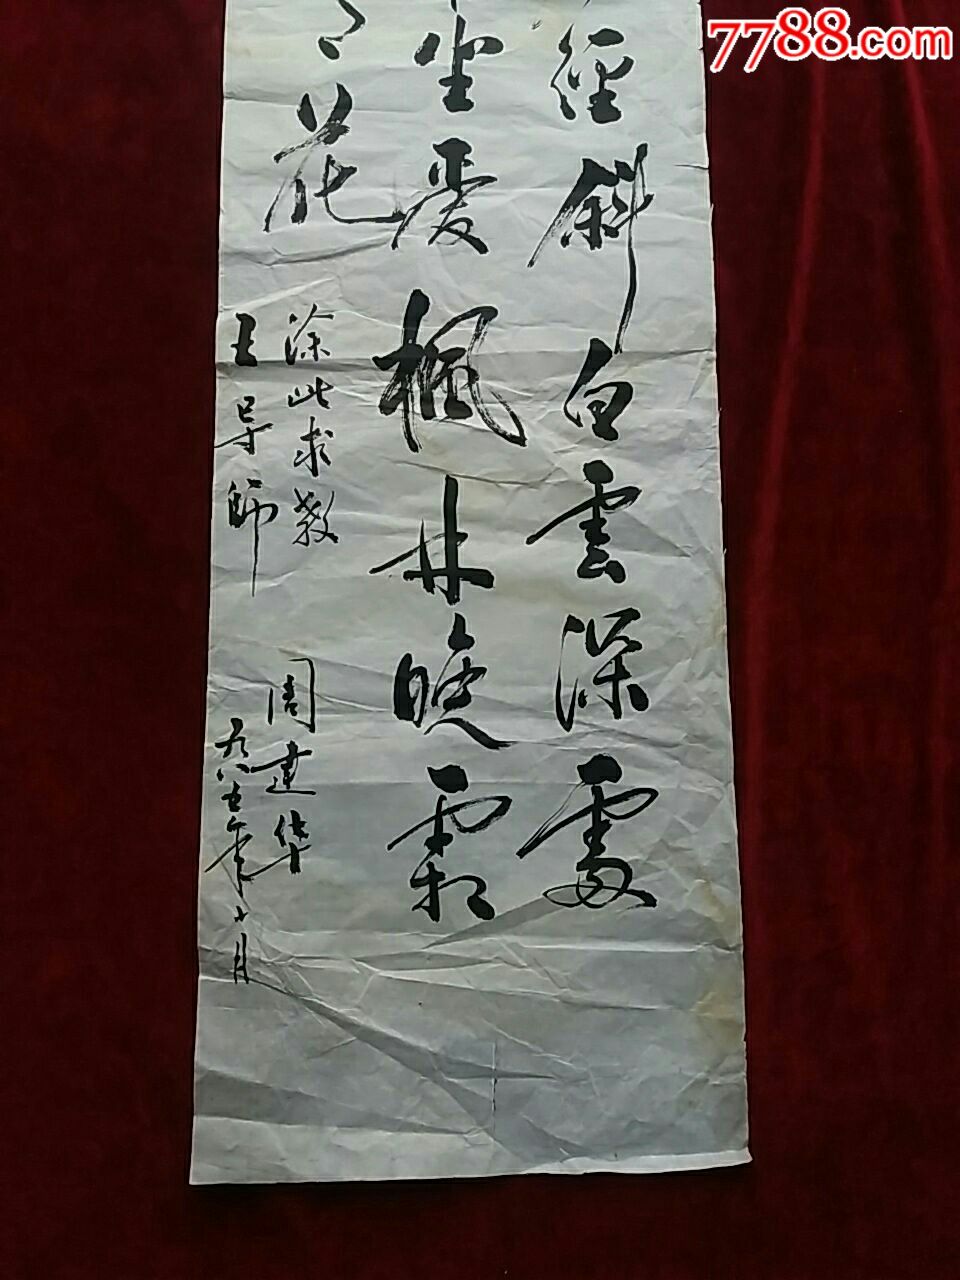 7788.com
徑斜白雲深處
坐爱楓林晚霜
花
涂此求教
王导师
周建华
一九八五年十月